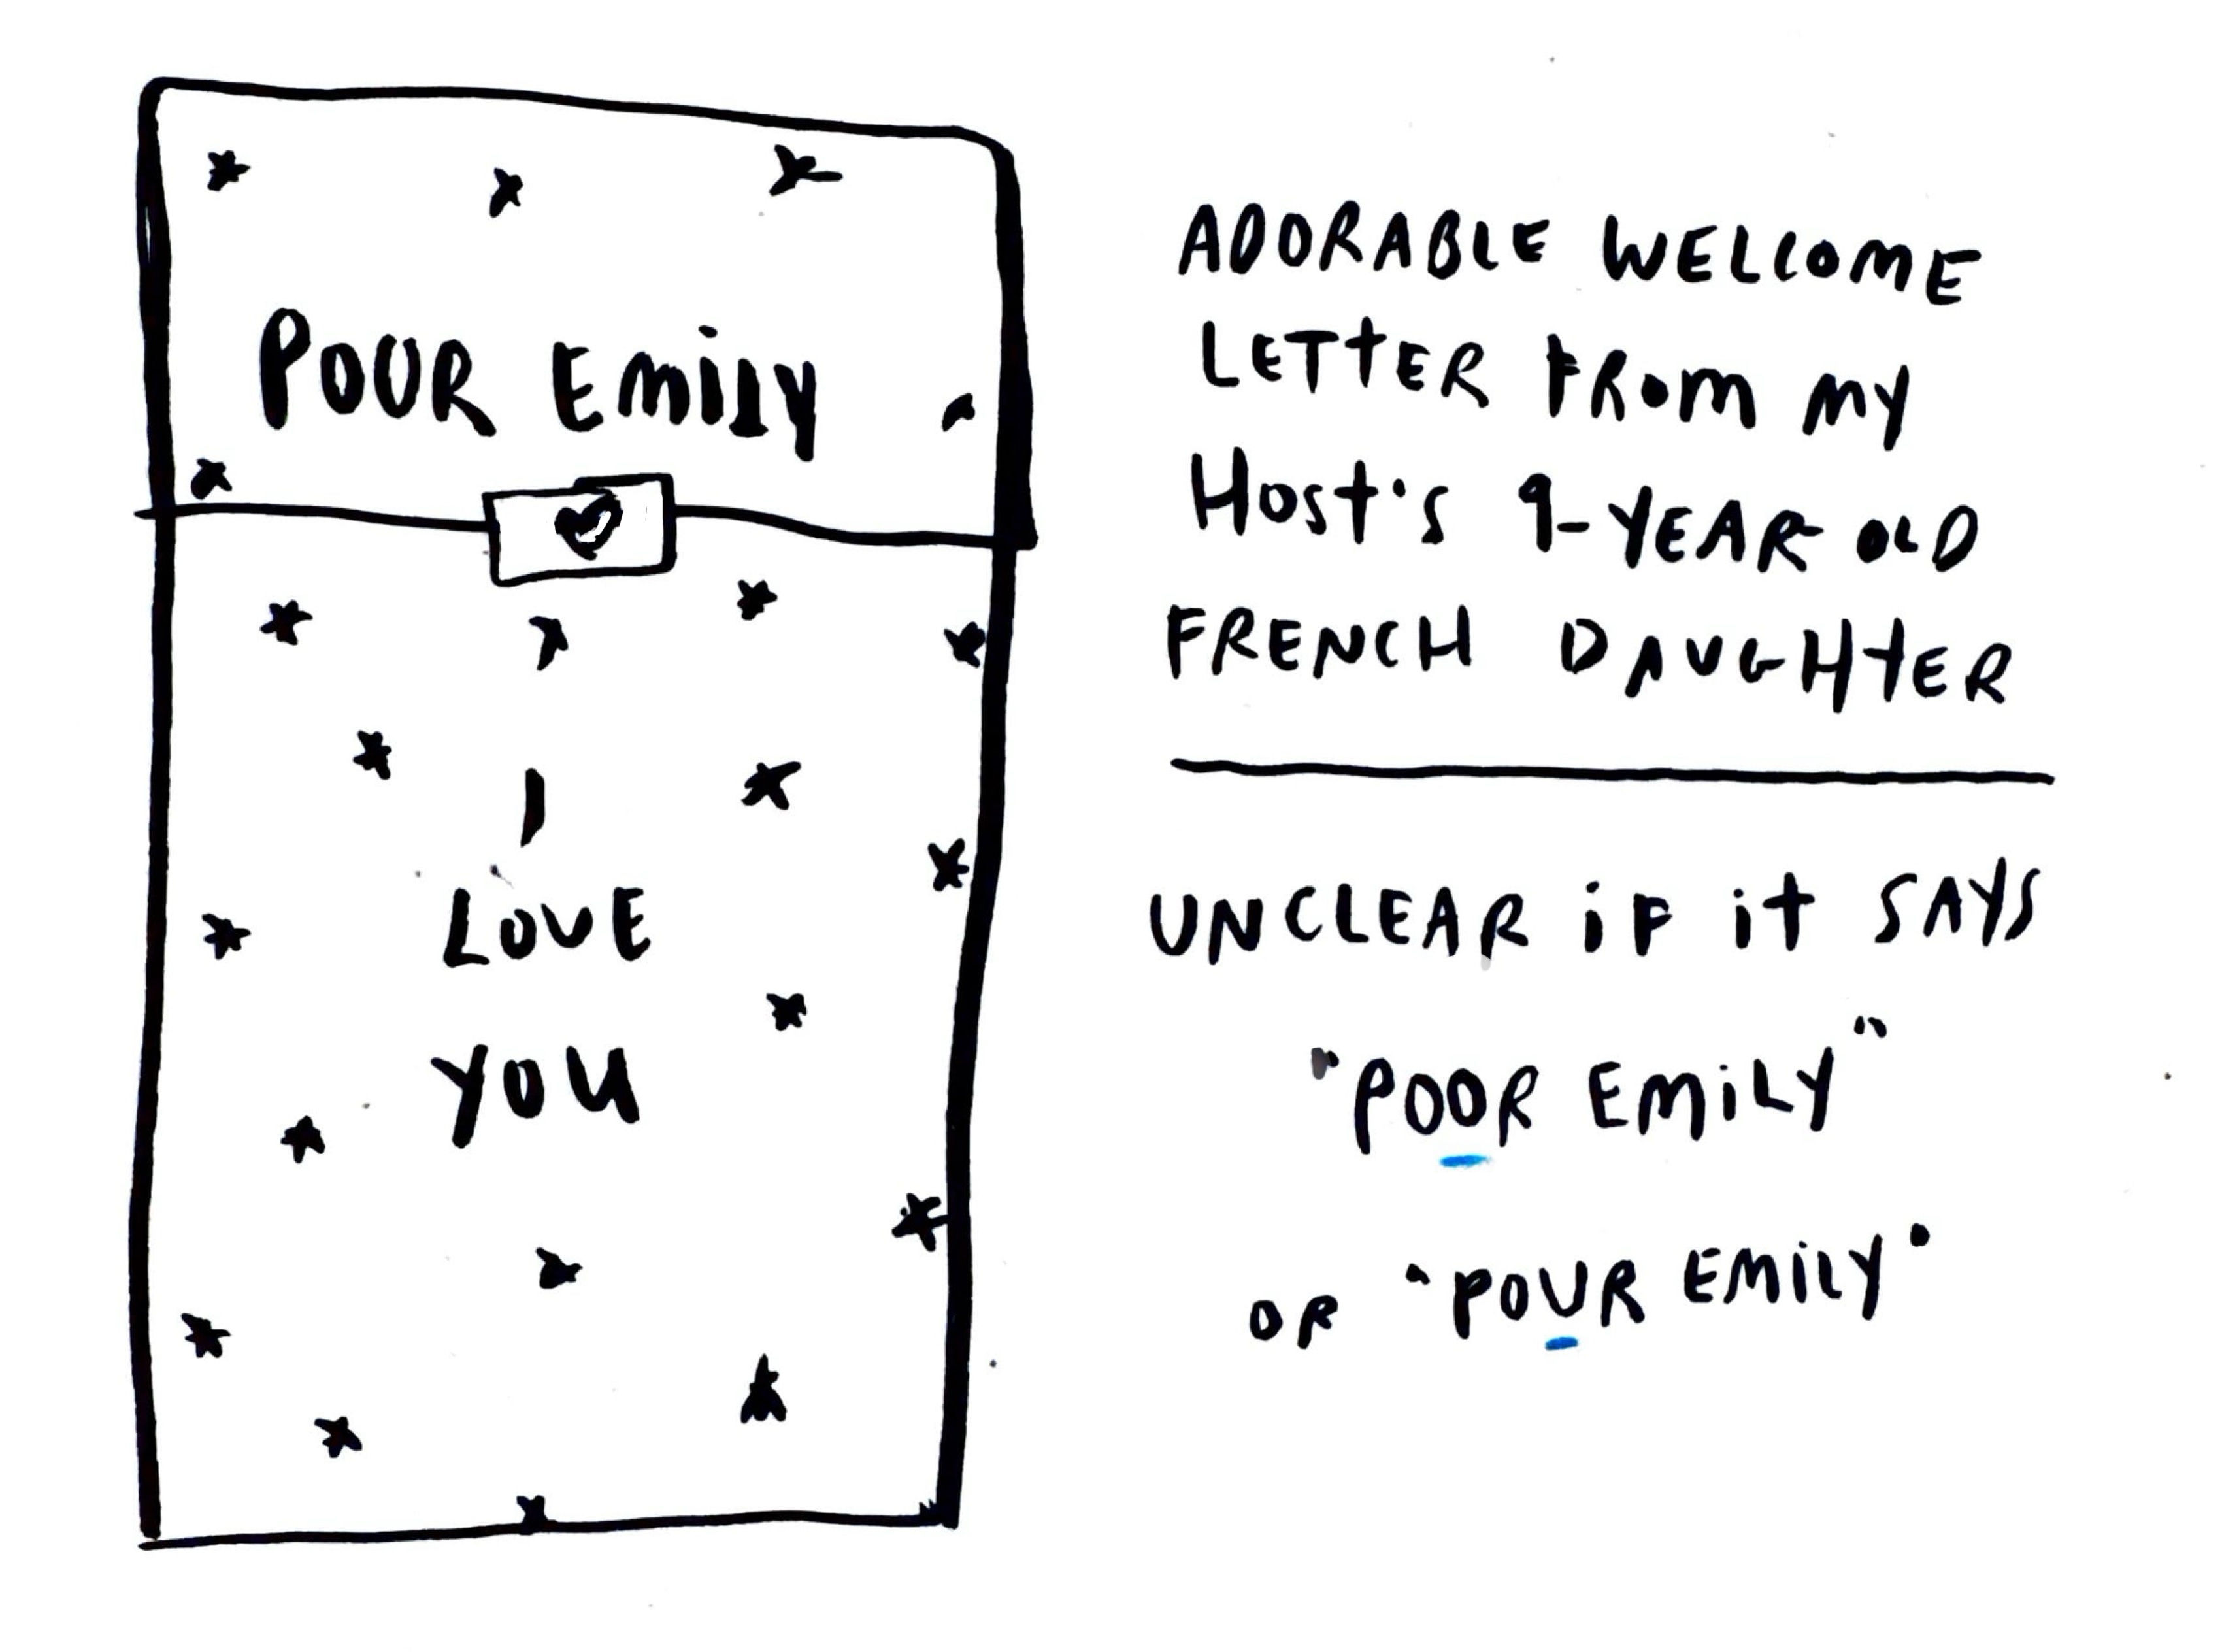 POUR EMILY
I
LOVE
YOU
ADORABLE WELCOME
LETTER FROM MY
HOST'S 9-YEAR OLD
FRENCH DAUGHTER
UNCLEAR iF it SAYS
"POOR EMiLY"
OR "POUR EMiLY"